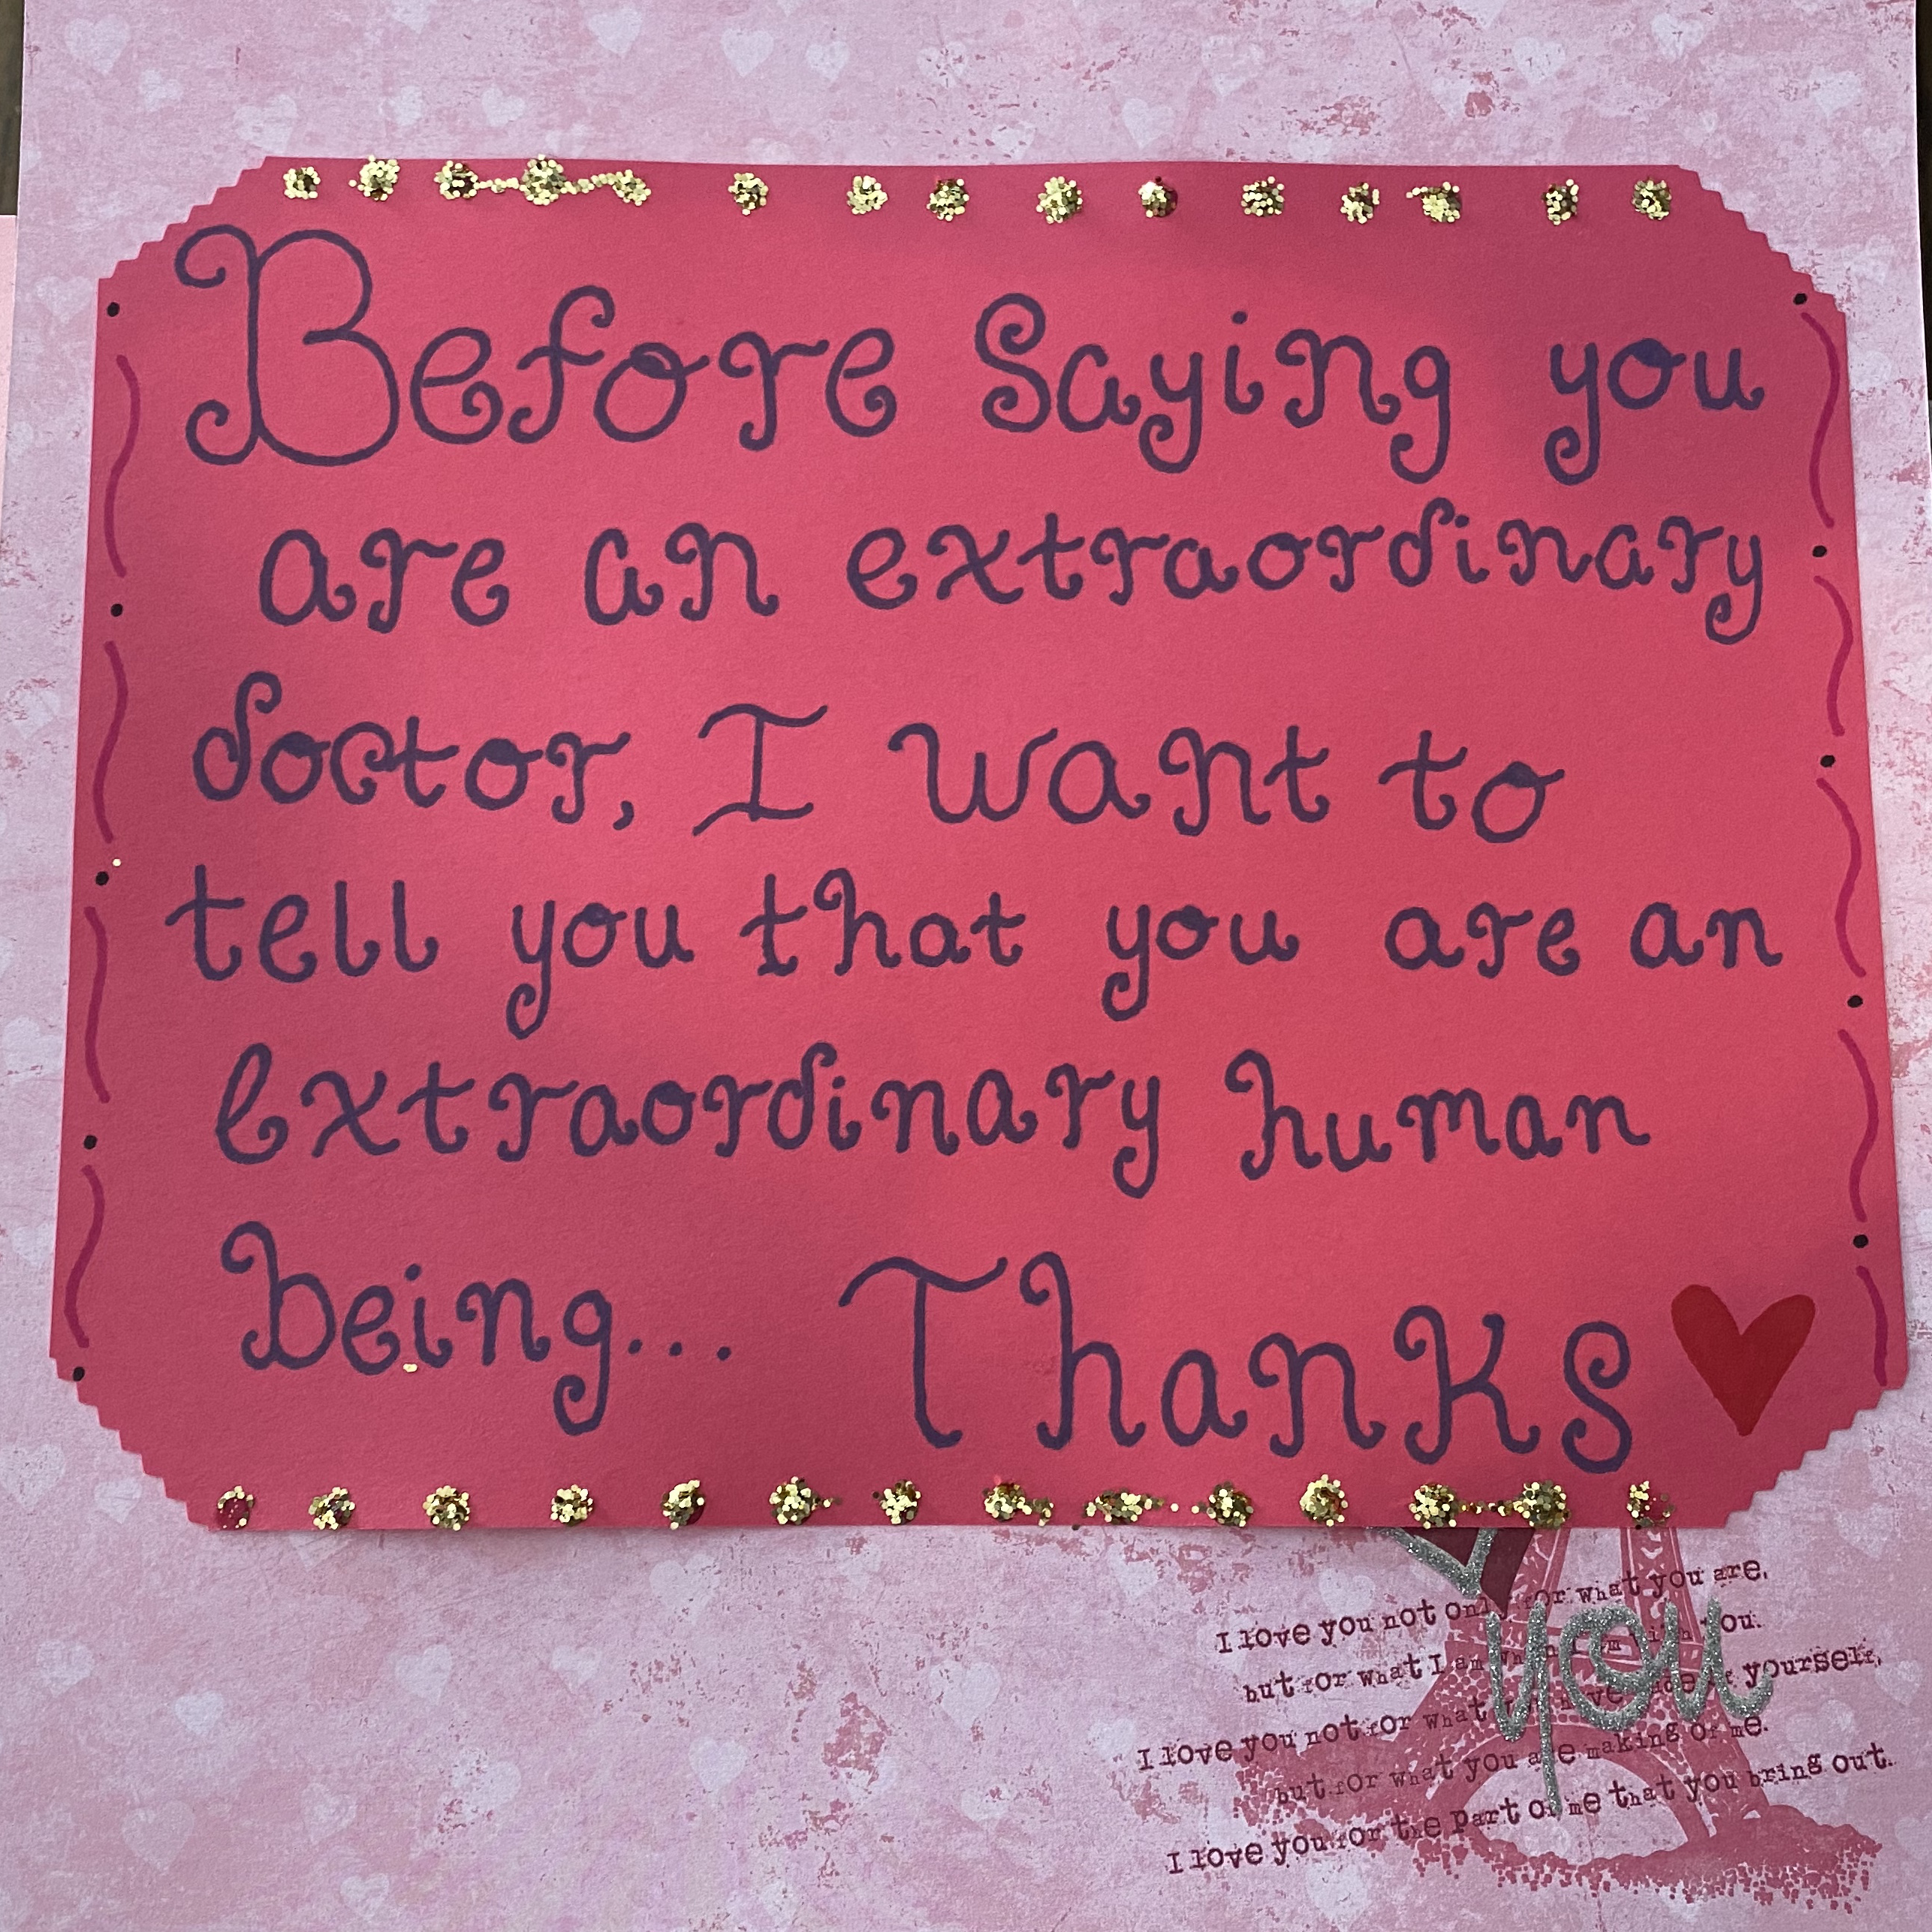 Before Saying you
are an extraordinary
doctor, I want to
tell you that you are an
extraordinary human
being... Thanks
I love you not only for what you are,
but for what I am when I am with you.
I love you not for what you have made of yourself,
but for what you are making of me.
I love you for the part of me that you bring out.
you